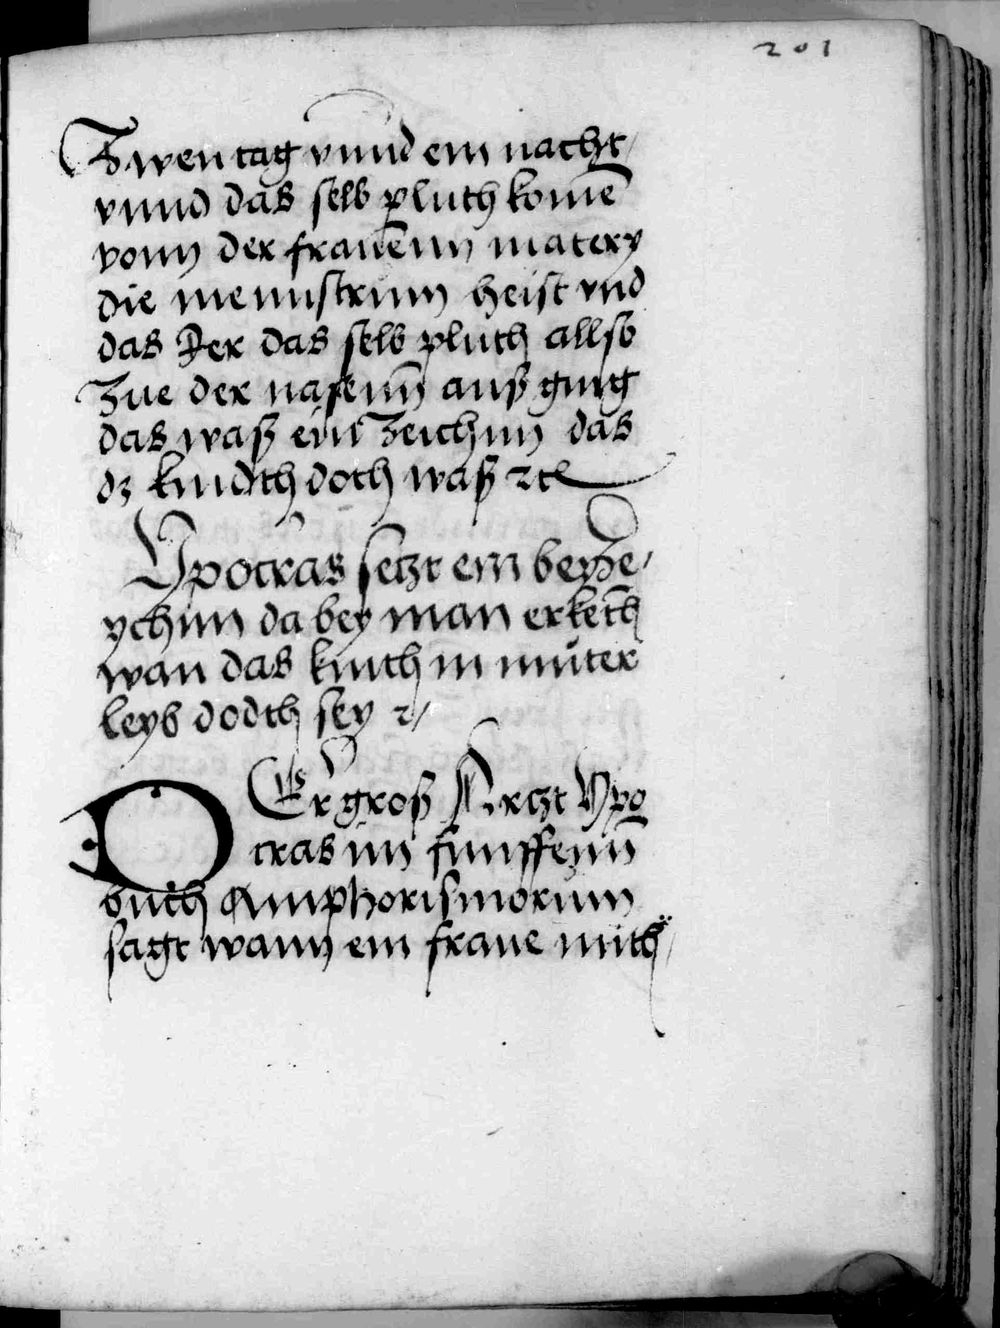 201
Zwen tag vnnd ein nacht /
vnnd das selb pluth komē
vonn der frauēnn matery
die mennstrum heist vnd
das Jer das selb pluth allso
Zue der nasenn̄ auß ging
das waß ein Zeichnn das
dz kindth doth waß ꝛc
Ypocras setzt ein beyze /
ychnn da bey man erkēth
wan das kinth in muter
leyb dodth sey ꝛ /
DEr groß Arczt Ypo
cras im funffenn̄
buch Amphorismorum
sagt wann ein fraue mith /